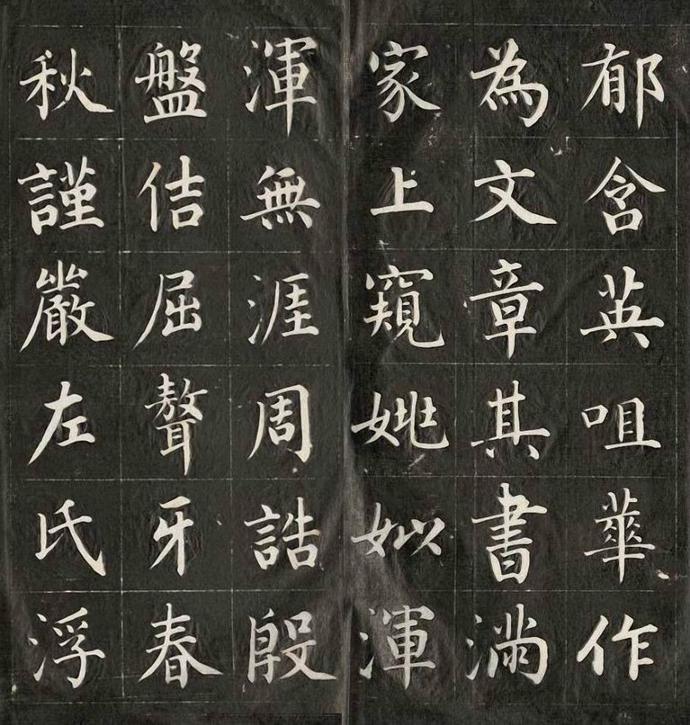 郁含英咀華作
為文章其書滿
家上窺姚姒渾
渾無涯周誥殷
盤佶屈聱牙春
秋謹嚴左氏浮